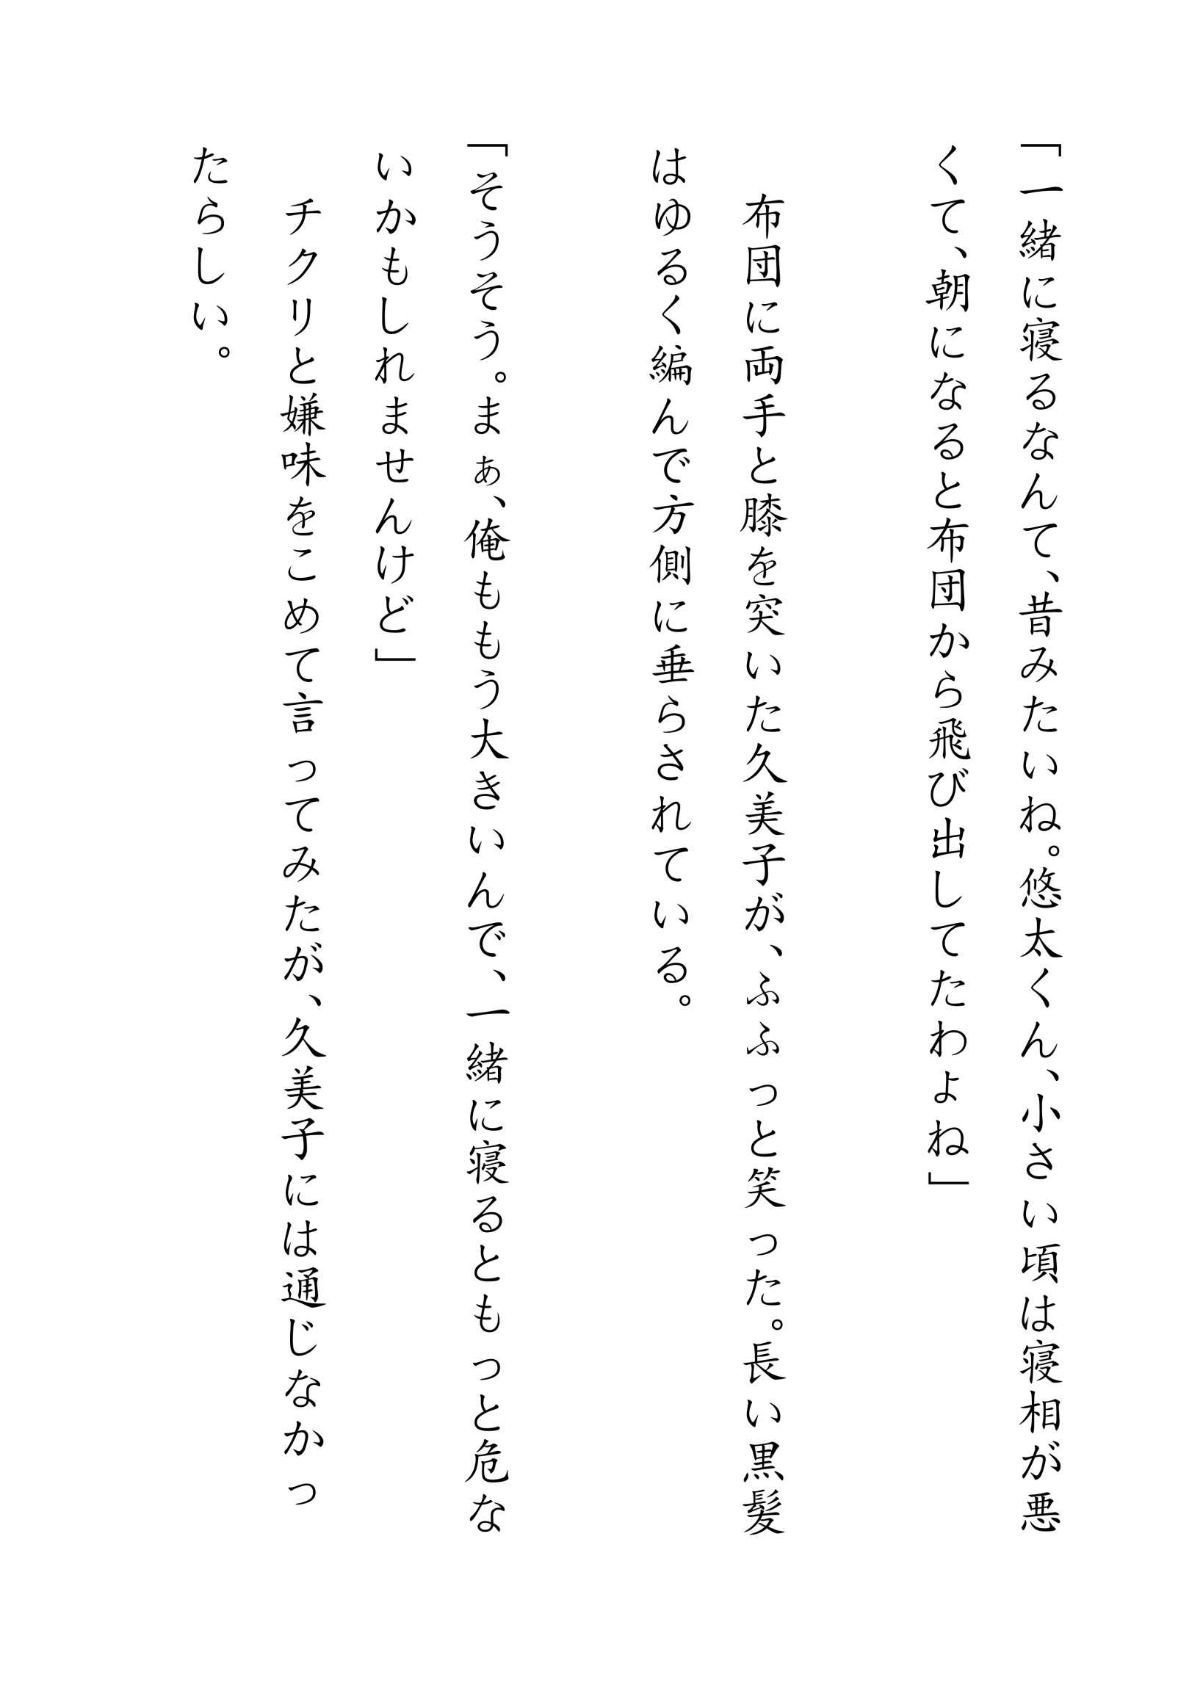 「一緒に寝るなんて、昔みたいね。悠太くん、小さい頃は寝相が悪
くて、朝になると布団から飛び出してたわよね」
　布団に両手と膝を突いた久美子が、ふふっと笑った。長い黒髪
はゆるく編んで方側に垂らされている。
「そうそう。まぁ、俺ももう大きいんで、一緒に寝るともっと危な
いかもしれませんけど」
　チクリと嫌味をこめて言ってみたが、久美子には通じなかっ
たらしい。